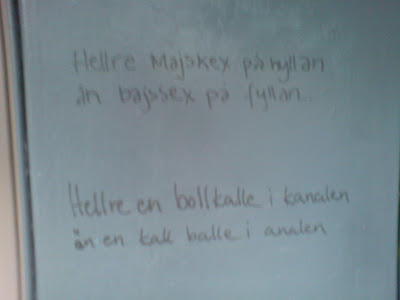 Hellre Majskex på hyllan
än bajssex på fyllan..
Hellre en bollkalle i kanalen
än en kall balle i analen